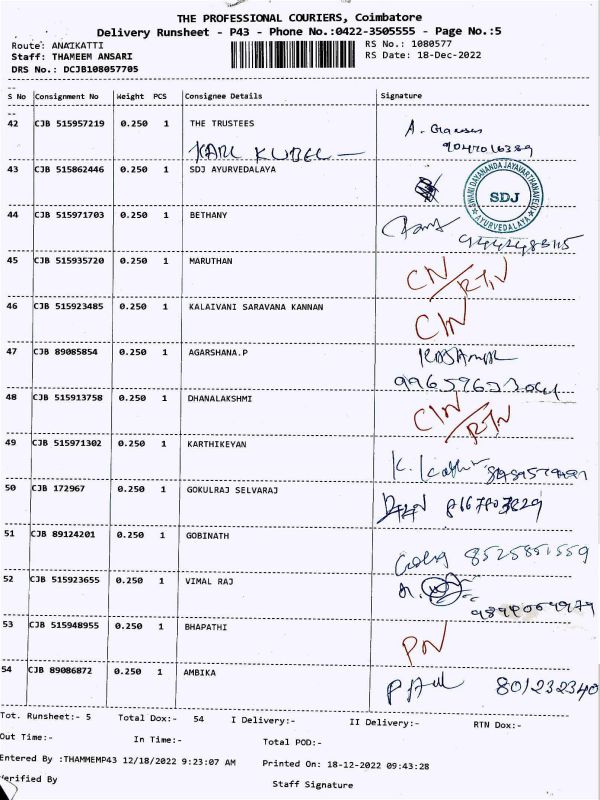 THE PROFESSIONAL COURIERS, Coimbatore
Delivery Runsheet - P43 - Phone No.:0422-3505555 - Page No.:5
Route: ANAIKATTI
RS No.: 1080577
Staff: THAMEEM ANSARI
RS Date: 18-Dec-2022
DRS No.: DCJB108057705
S No Consignment No Weight PCS Consignee Details Signature
42 CJB 515957219 0.250 1 THE TRUSTEES
9047016389
KARL KUBEL
43 CJB 515862446 0.250 1 SDJ AYURVEDALAYA
SWAMI DAYANANDA JAYAVARTHANAVELU
SDJ
AYURVEDALAYA
44 CJB 515971703 0.250 1 BETHANY
45 CJB 515935720 0.250 1 MARUTHAN
CN/RTN
46 CJB 515923485 0.250 1 KALAIVANI SARAVANA KANNAN
CIN
47 CJB 89085854 0.250 1 AGARSHANA.P
48 CJB 515913758 0.250 1 DHANALAKSHMI
CIN/RTN
49 CJB 515971302 0.250 1 KARTHIKEYAN
50 CJB 172967 0.250 1 GOKULRAJ SELVARAJ
51 CJB 89124201 0.250 1 GOBINATH
8525851559
52 CJB 515923655 0.250 1 VIMAL RAJ
53 CJB 515948955 0.250 1 BHAPATHI
PN
54 CJB 89086872 0.250 1 AMBIKA
801232340
Tot. Runsheet:- 5 Total Dox:- 54 I Delivery:- II Delivery:- RTN Dox:-
Out Time:- In Time:- Total POD:-
Entered By :THAMMEMP43 12/18/2022 9:23:07 AM Printed On: 18-12-2022 09:43:28
Verified By Staff Signature